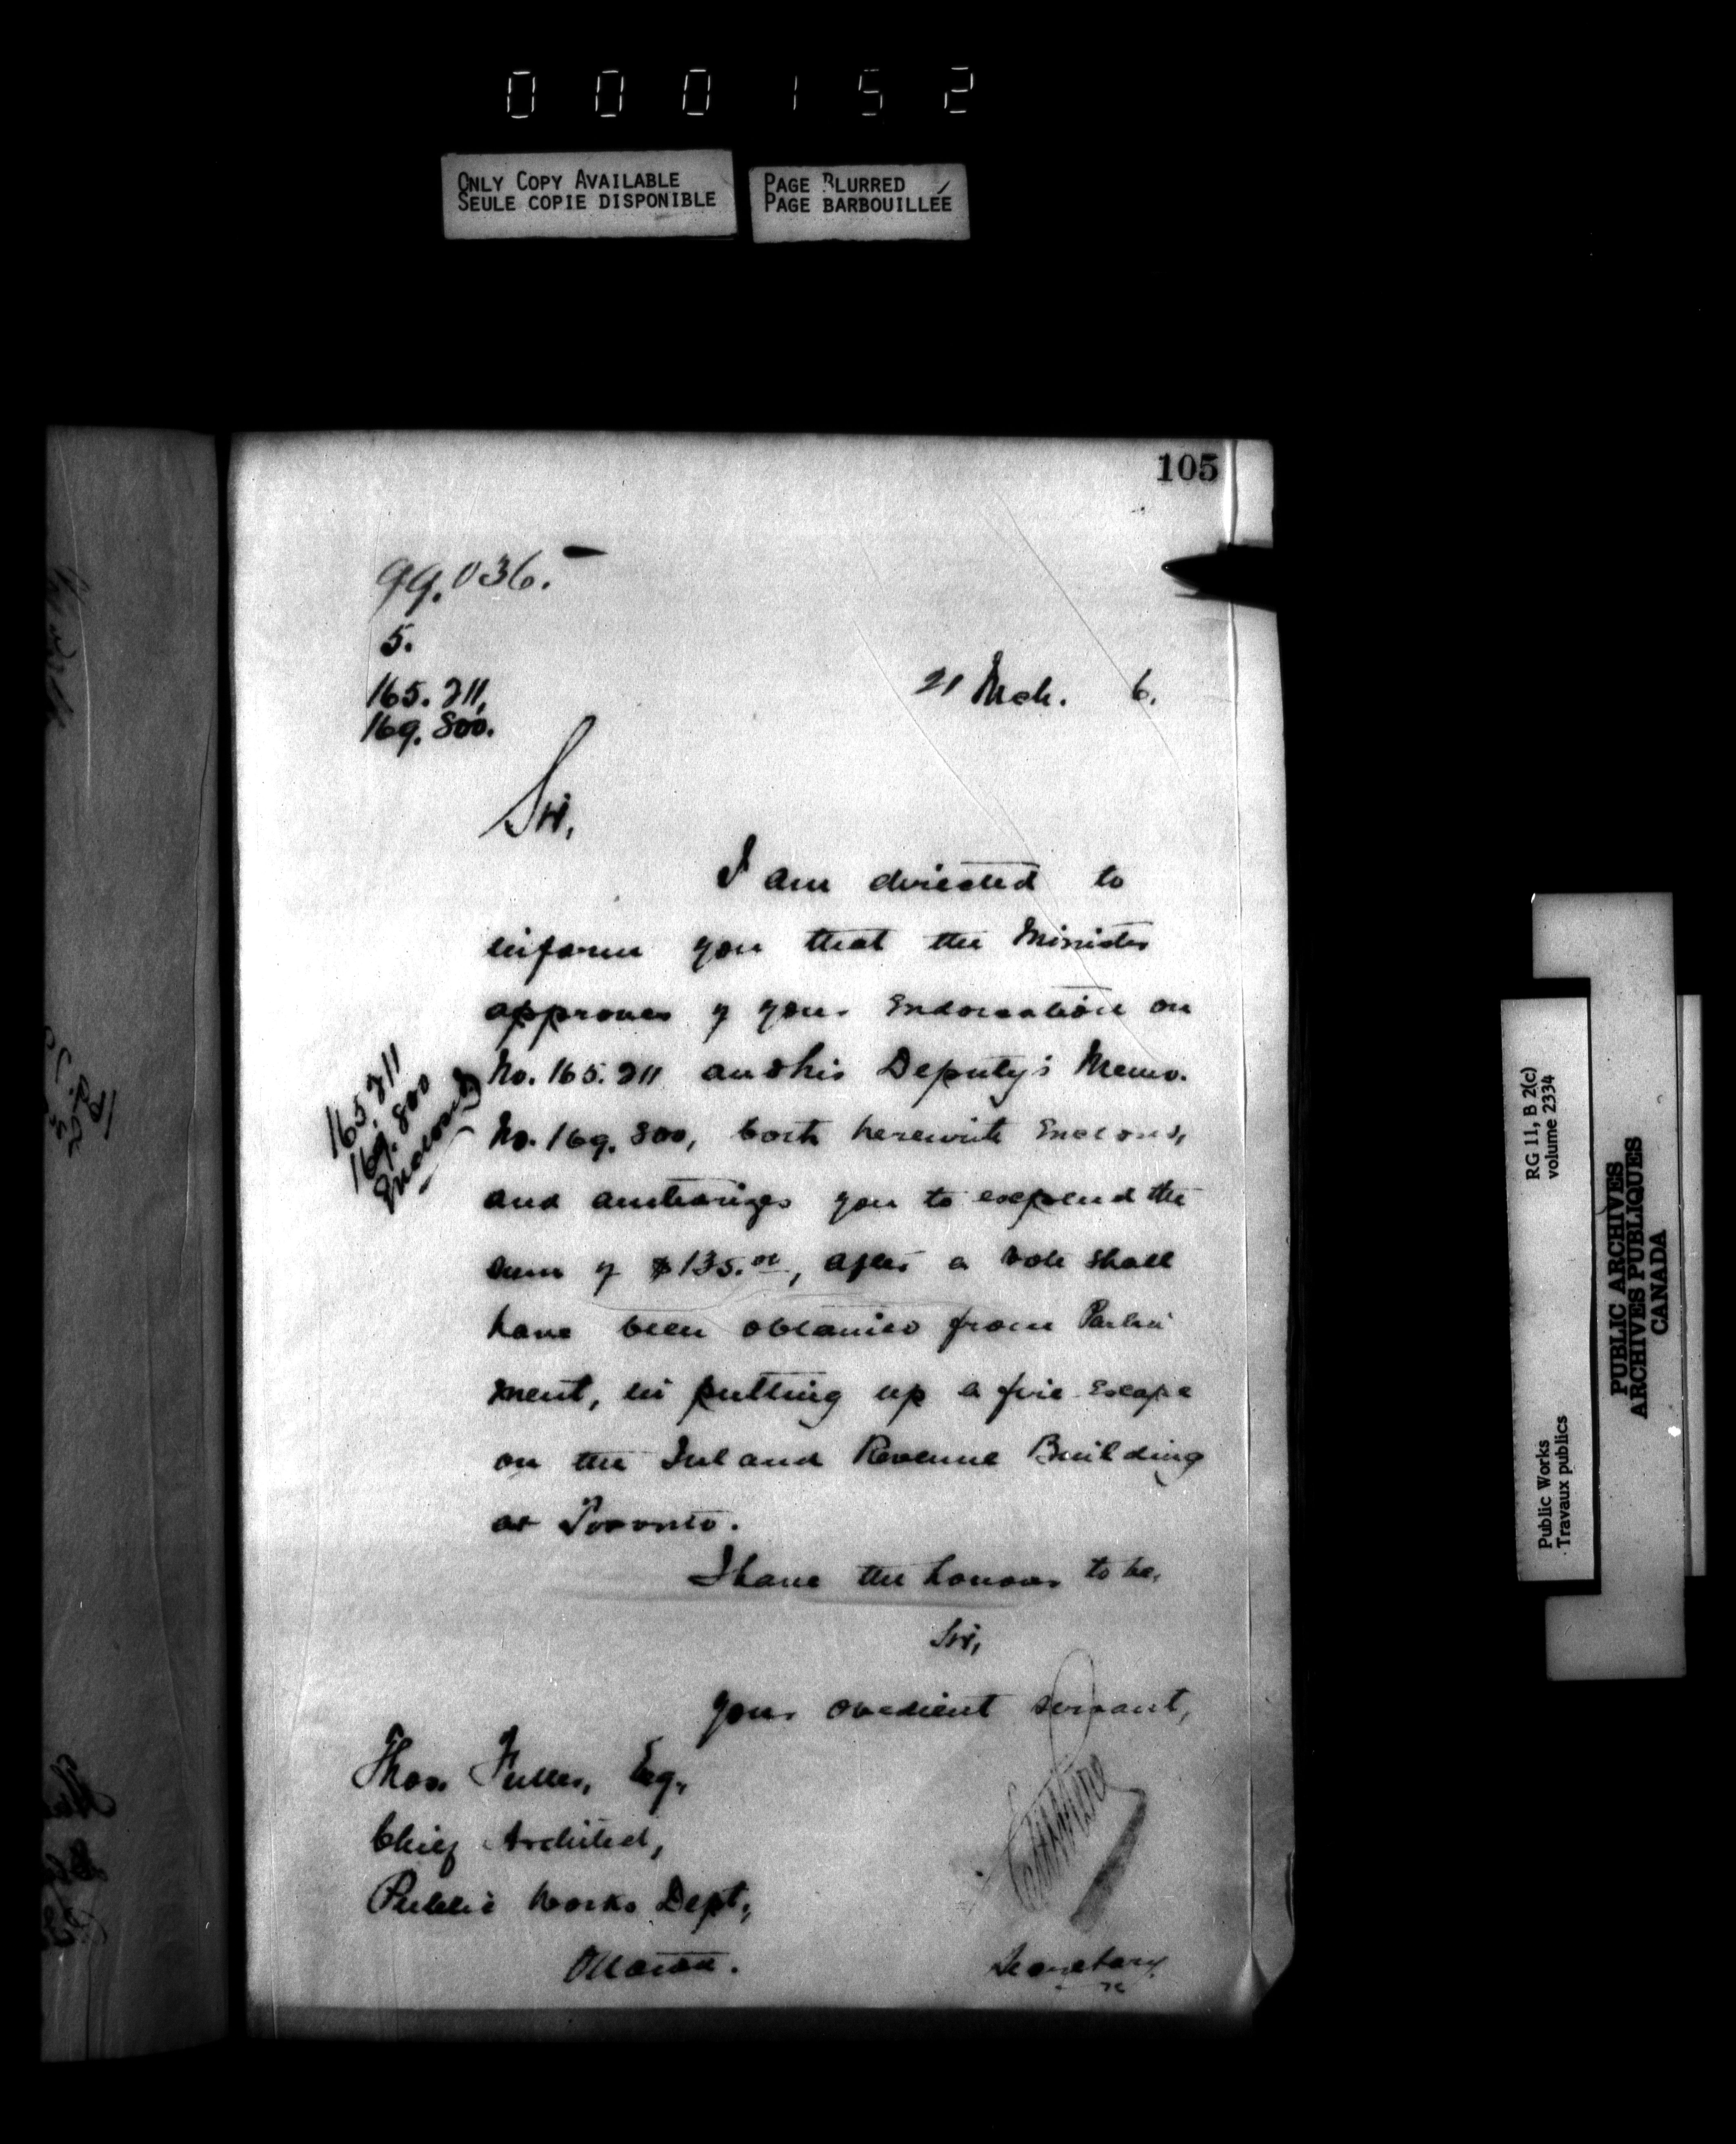 000152
ONLY COPY AVAILABLE
SEULE COPIE DISPONIBLE
PAGE BLURRED
PAGE BARBOUILLÉE
105
99.036.
5.
165.211,
169.800.
21 Mch. 6.
Sir,
I am directed to
inform you that the Minister
approves of your Endorsation on
No. 165.211 and his Deputy's Memo.
No. 169.800, both herewith Enclosed,
and authorizes you to expend the
sum of $135.00, after a vote shall
have been obtained from Parlia
ment, in putting up a fire escape
on the Inland Revenue Building
at Toronto.
165.211
169.800
Enclosed
I have the honour to be,
Sir,
Your obedient servant,
Thos. Fuller, Esq.,
Chief Architect,
Public Works Dept.,
Ottawa.
Secretary.
RG 11, B 2(c)
volume 2334
Public Works
Travaux publics
PUBLIC ARCHIVES
ARCHIVES PUBLIQUES
CANADA